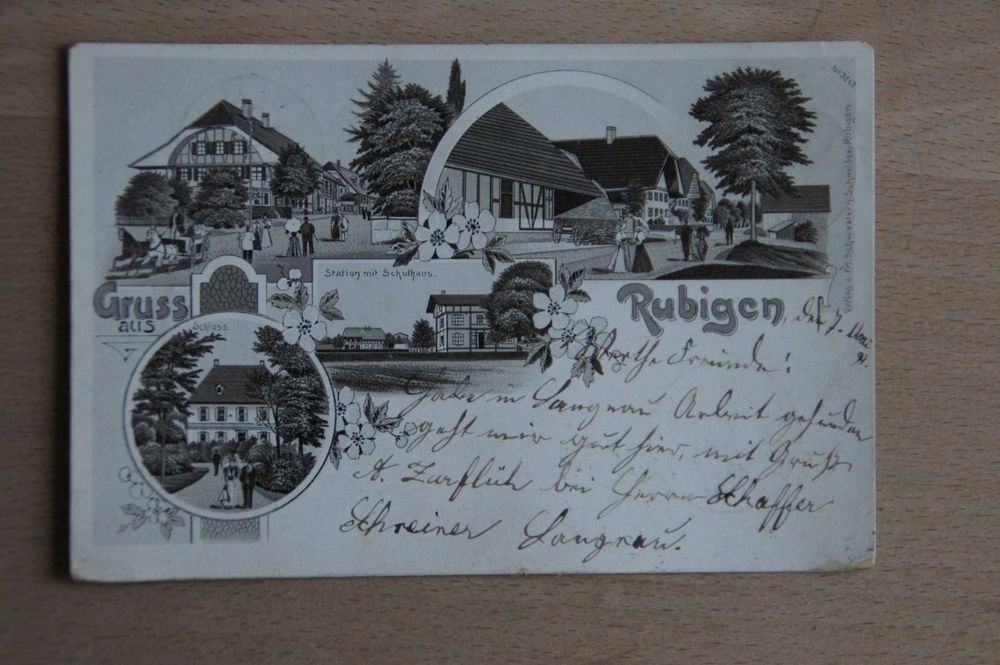 No 3267
Verlag v. Frl. Schwestern Schneider, Rubigen.
Station mit Schulhaus.
Gruss
aus
Rubigen
Schloss.
, den 7. Mai
Werthe Freunde!
Habe in Langnau Arbeit gefunden
geht mir gut hier, mit Gruß
A. Zarflüh bei Herrn Schaffer
Schreiner Langnau.